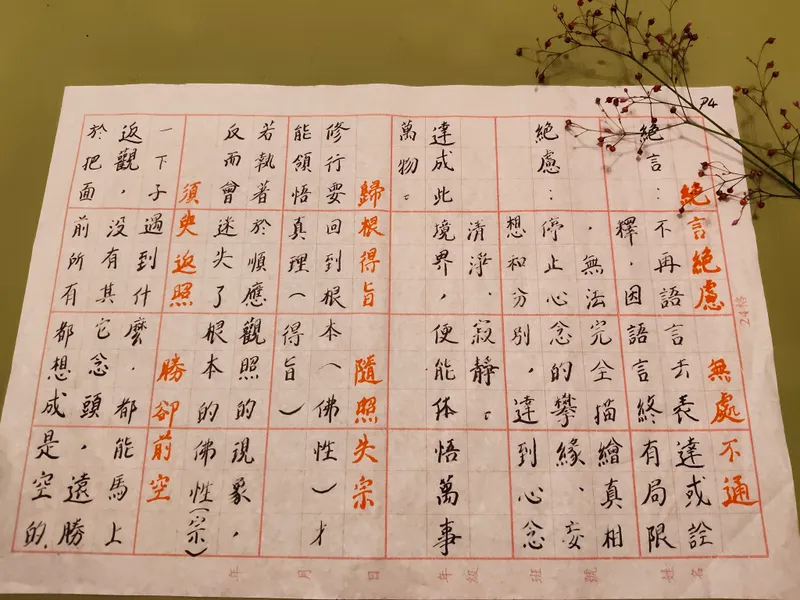 P4
絕言絕慮 無處不通
絕言:不再語言去表達或詮
釋,因語言終有局限
,無法完全描繪真相
絕慮:停止心念的攀緣、妄
想和分別,達到心念
清淨、寂靜。
達成此境界,便能体悟萬事
萬物。
歸根得旨 隨照失宗
修行要回到根本(佛性)才
能領悟真理(得旨)
若執著於順應觀照的現象,
反而會迷失了根本的佛性(宗)
須臾返照 勝卻前空
一下子遇到什麼,都能馬上
返觀,没有其它念頭,遠勝
於把面前所有都想成是空的.
24格
年 月 日 年級 班 號 姓名